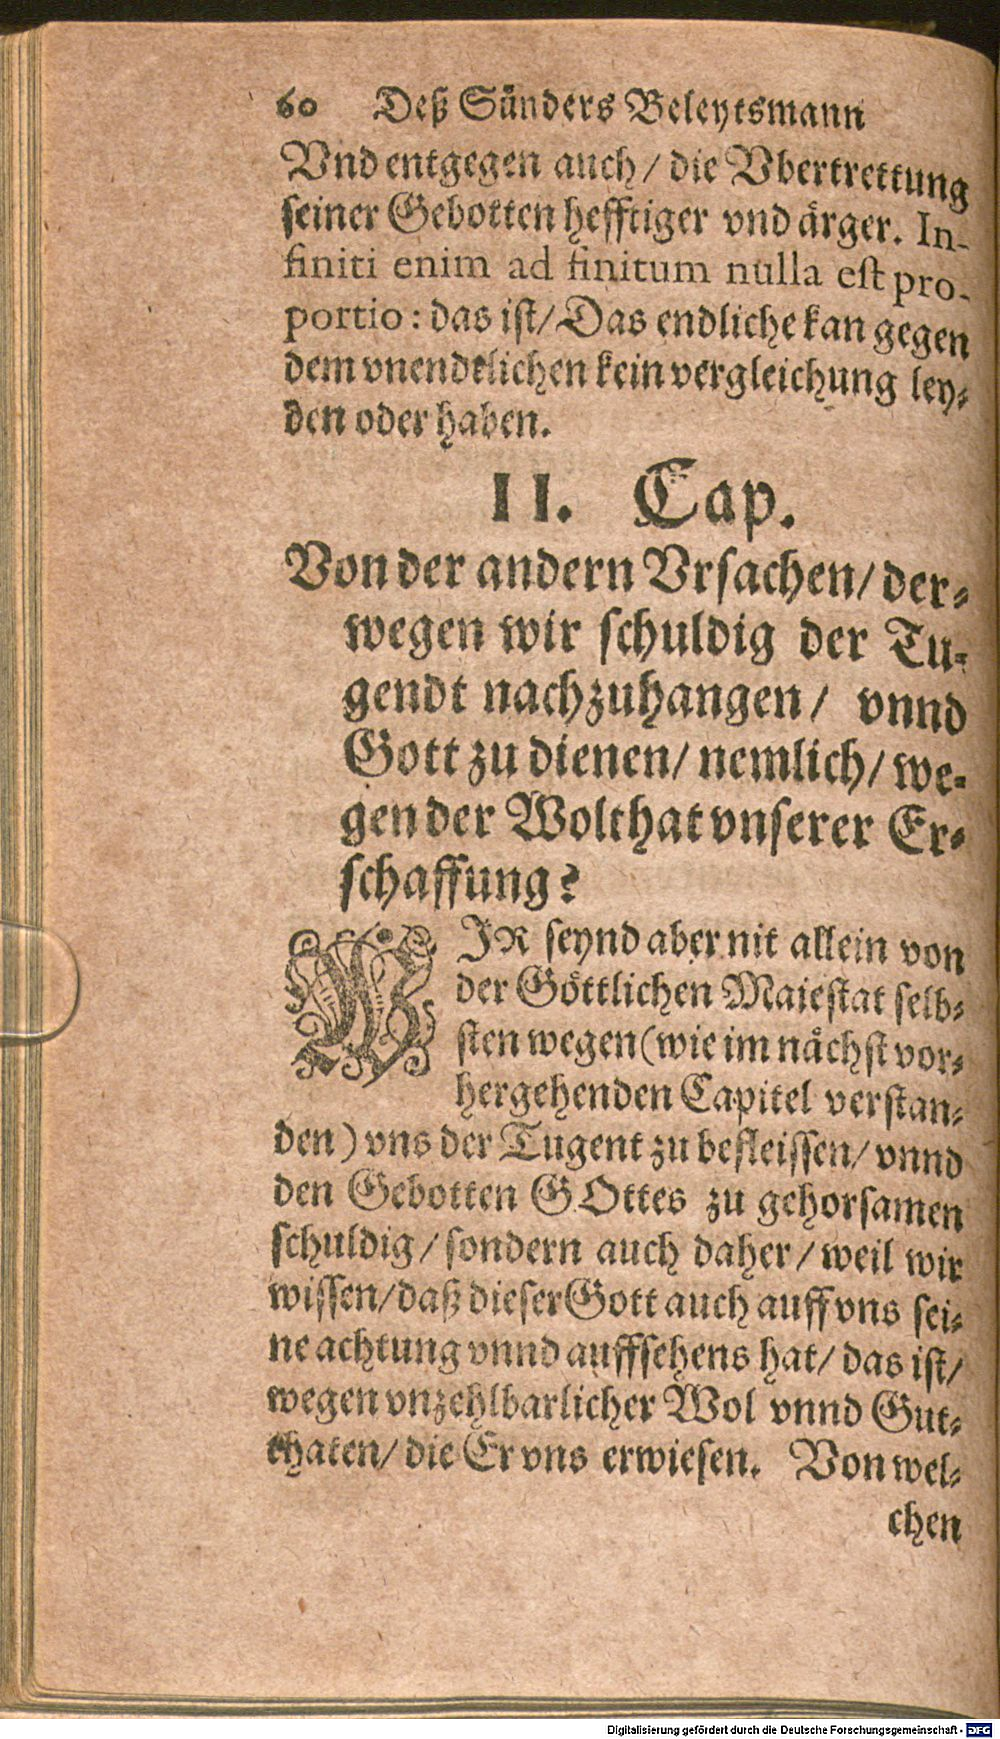 60 Deß Sünders Beleytsmann
Vnd entgegen auch / die Vbertrettung
seiner Gebotten hefftiger vnd ärger. In-
finiti enim ad finitum nulla est pro-
portio : das ist / Das endliche kan gegen
dem vnendtlichen kein vergleichung ley-
den oder haben.
II. Cap.
Von der andern Vrsachen / der-
wegen wir schuldig der Tu-
gendt nachzuhangen / vnnd
Gott zu dienen / nemlich / we-
gen der Wolthat vnserer Er-
schaffung?
WIR seynd aber nit allein von
der Göttlichen Maiestat selb-
sten wegen (wie im nächst vor-
hergehenden Capitel verstan-
den) vns der Tugent zu befleissen / vnnd
den Gebotten GOttes zu gehorsamen
schuldig / sondern auch daher / weil wir
wissen / daß dieser Gott auch auff vns sei-
ne achtung vnnd auffsehens hat / das ist /
wegen vnzehlbarlicher Wol vnnd Gut-
thaten / die Er vns erwiesen. Von wel-
chen
Digitalisierung gefördert durch die Deutsche Forschungsgemeinschaft - DFG